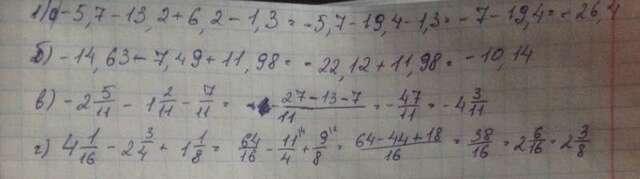 1) а) -5,7-13,2+6,2-1,3 = -5,7-19,4-1,3 = -7-19,4 = -26,4
б) -14,63-7,49+11,98 = -22,12+11,98 = -10,14
в) -2 5/11 - 1 2/11 - 7/11 = (-27-13-7)/11 = -47/11 = -4 3/11
г) 4 1/16 - 2 3/4 + 1 1/8 = 64/16 - 11/4 + 9/8 = (64-44+18)/16 = 38/16 = 2 6/16 = 2 3/8